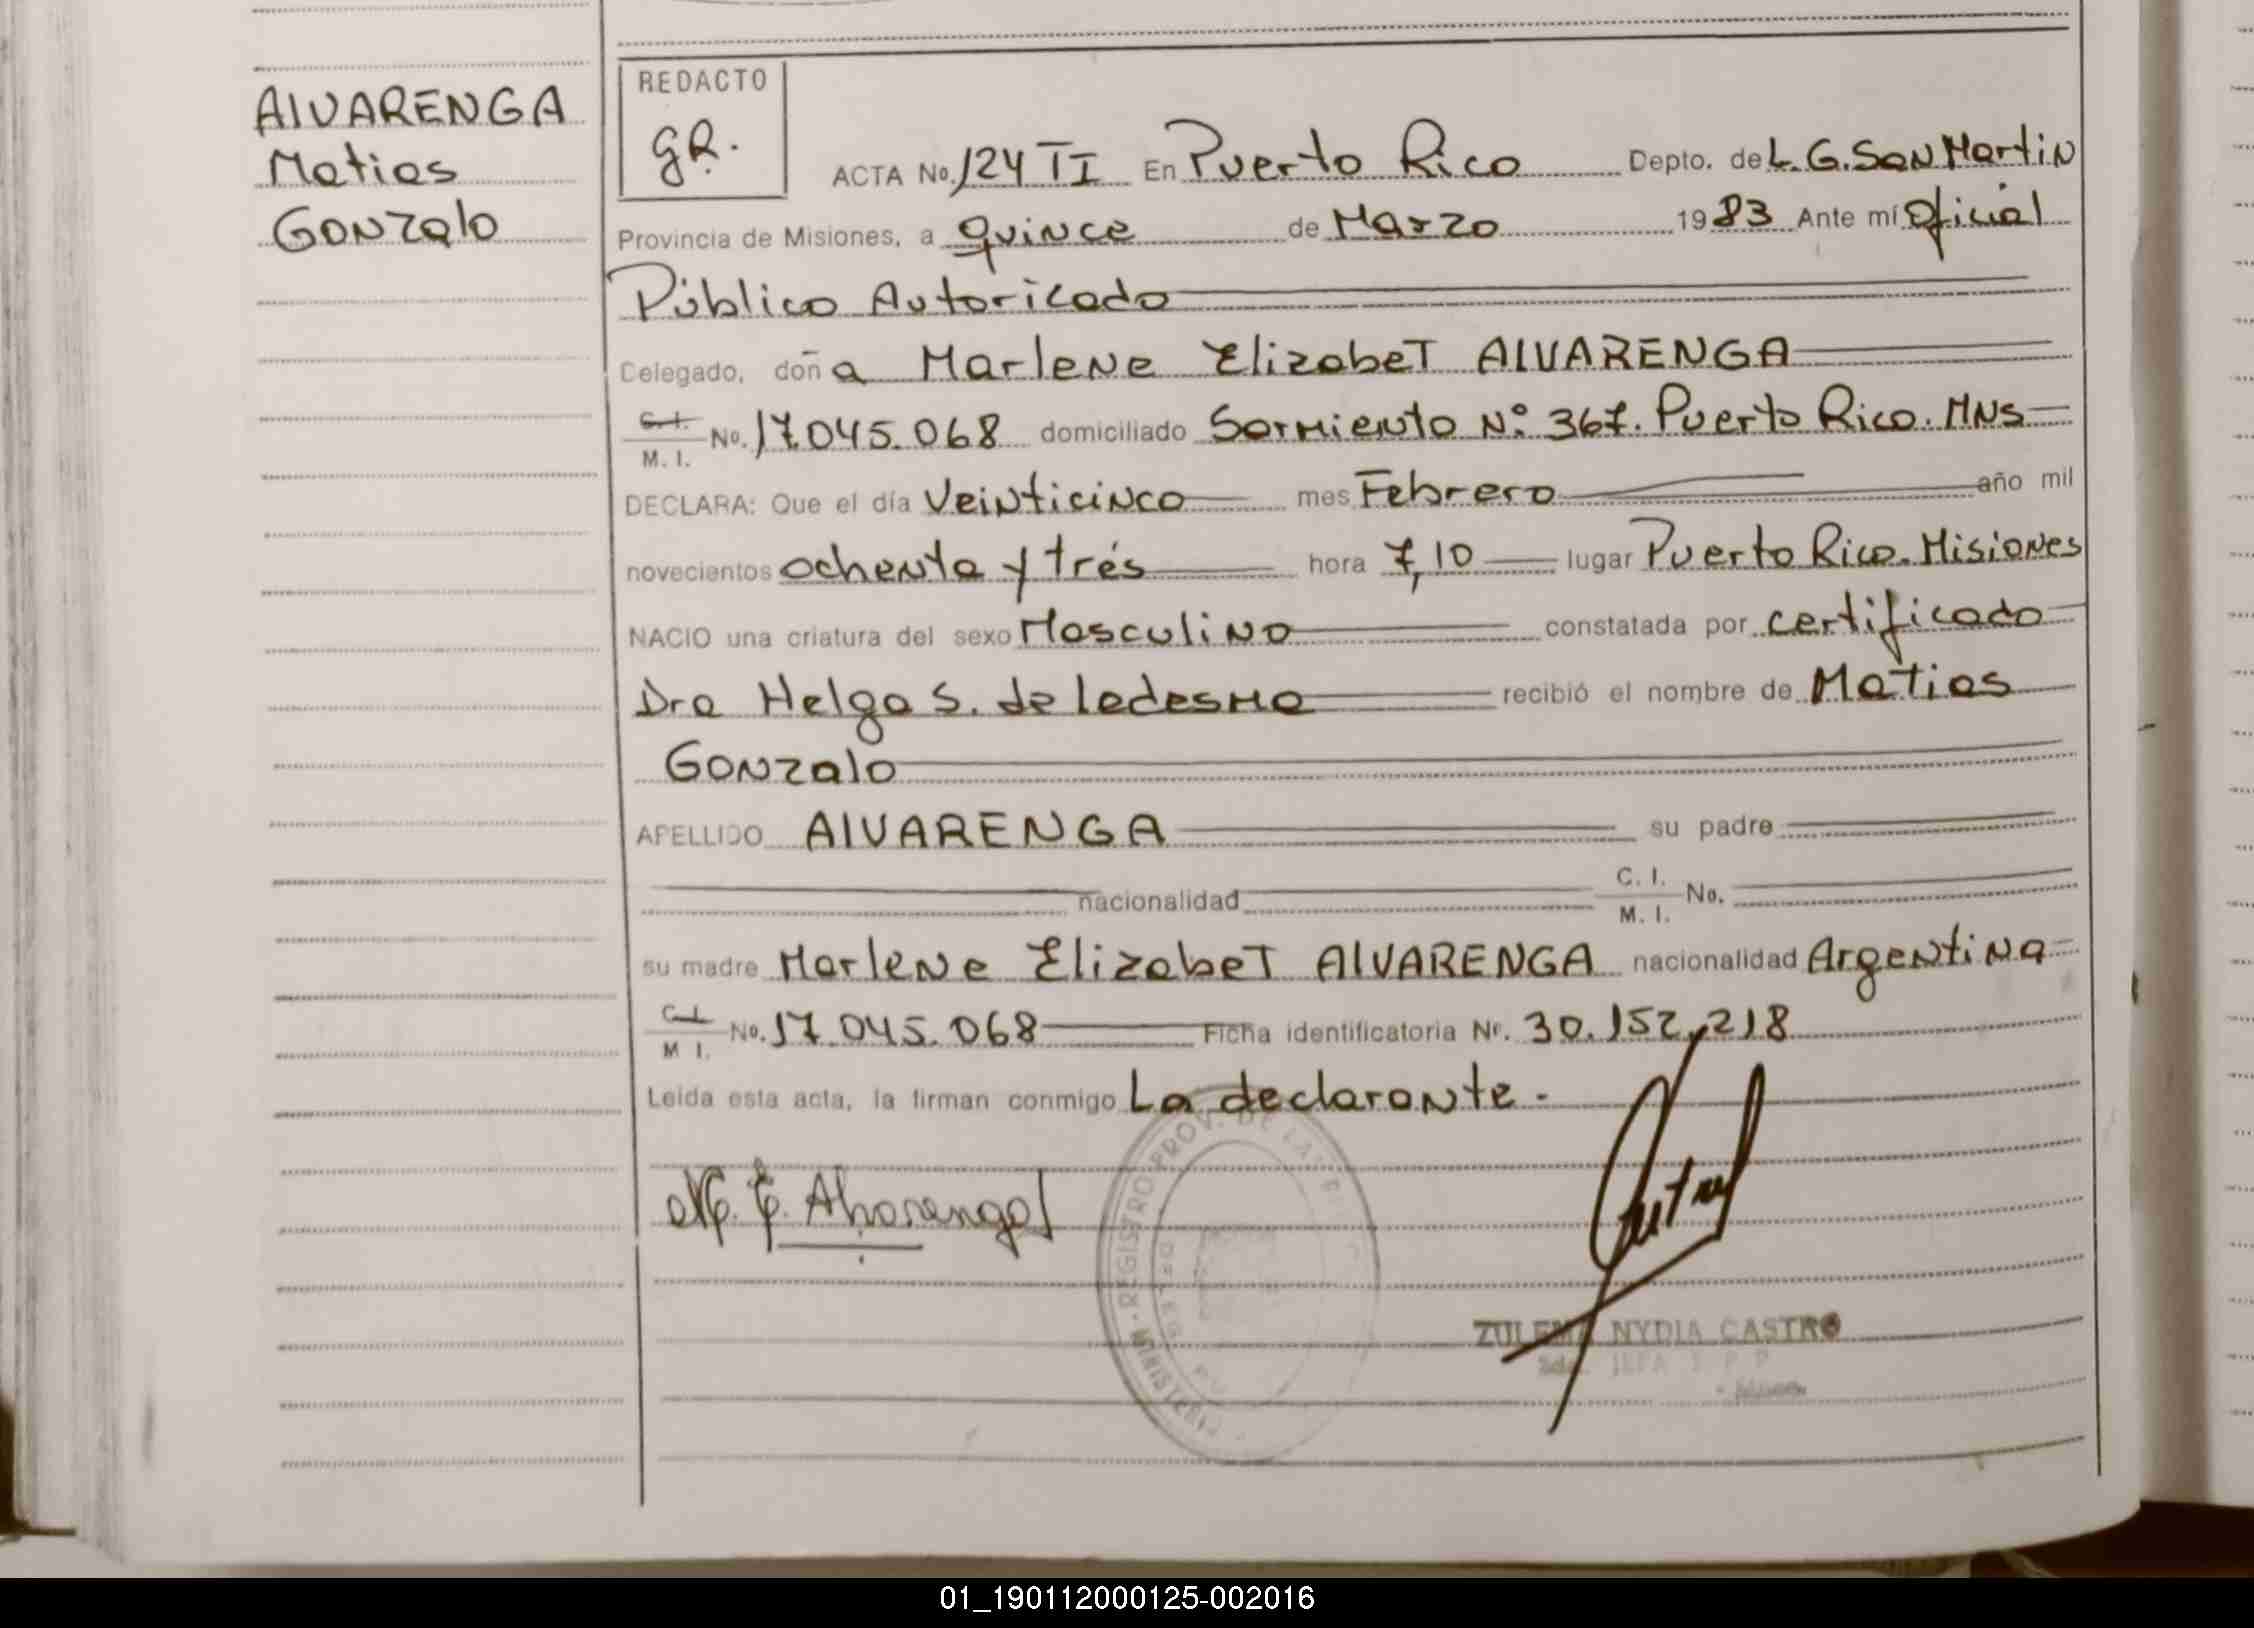 AlVARENGA
Matias
Gonzalo
REDACTO
GR.
ACTA No. 124 TI En Puerto Rico Depto. de L. G. San Martin
Provincia de Misiones, a quince de Marzo 1983 Ante mí Oficial
Público Autoricado
Delegado, doña Marlene Elizabet AlVARENGA
C. I. / M. I. No. 17.045.068 domiciliado Sarmiento Nº 367. Puerto Rico. MNS
DECLARA: Que el día Veinticinco mes Febrero año mil
novecientos ochenta y trés hora 7,10 lugar Puerto Rico. Misiones
NACIO una criatura del sexo Masculino constatada por certificado
Dra Helga S. de ledesma recibió el nombre de Matias
Gonzalo
APELLIDO AlVARENGA su padre
nacionalidad C. I. / M. I. No.
su madre Marlene Elizabet AlVARENGA nacionalidad Argentina
C. I. / M. I. No. 17.045.068 Ficha identificatoria Nº. 30.152.218
Leida esta acta, la firman conmigo La declarante.
M. E. Alvarenga
REGISTRO PROV. DE LAS
MINISTERIO
ZULEMA NYDIA CASTRO
01_190112000125-002016